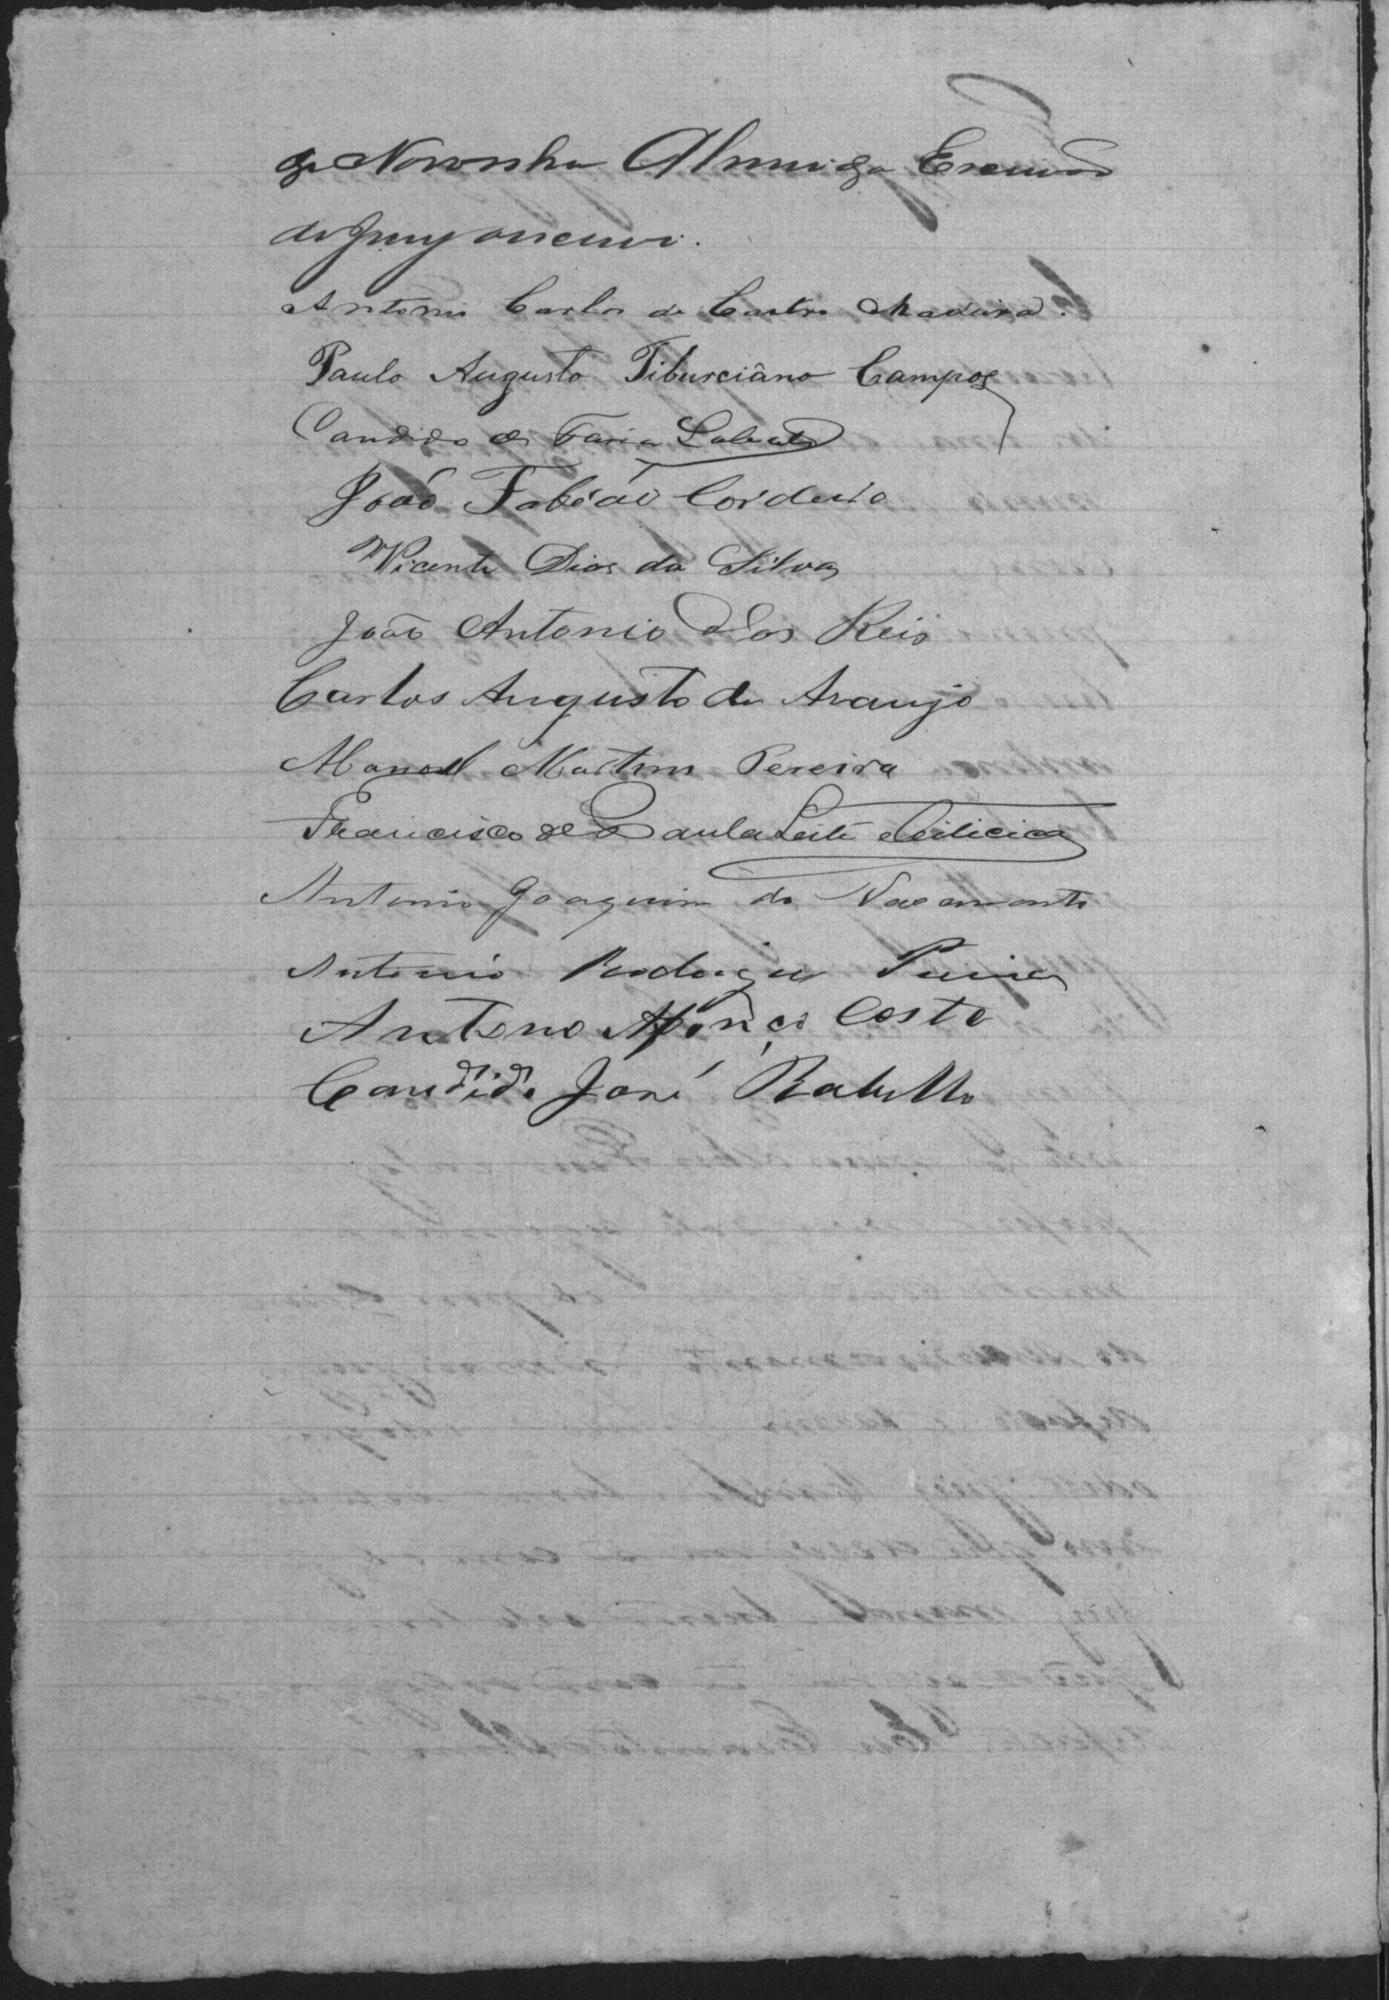 de Noronha Almeida Escrivão
do Jury o escrevi.
Antonio Carlos de Castro Madeira.
Paulo Augusto Tiburciâno Campos
Candido de Faria Lobato
João Fabião Cordeiro
Vicente Dias da Silva
João Antonio dos Reis
Carlos Augusto de Araujo
Manoel Martins Pereira
Francisco de Paula Leite e Oiticica
Antonio Joaquim do Nascimento
Antonio Rodrigues Pereira
Antonio Afonço Costa
Candido José Rabello